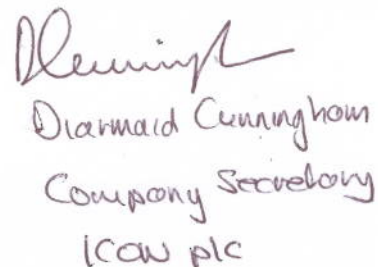 Diarmaid Cunningham
Company Secretary
ICON plc